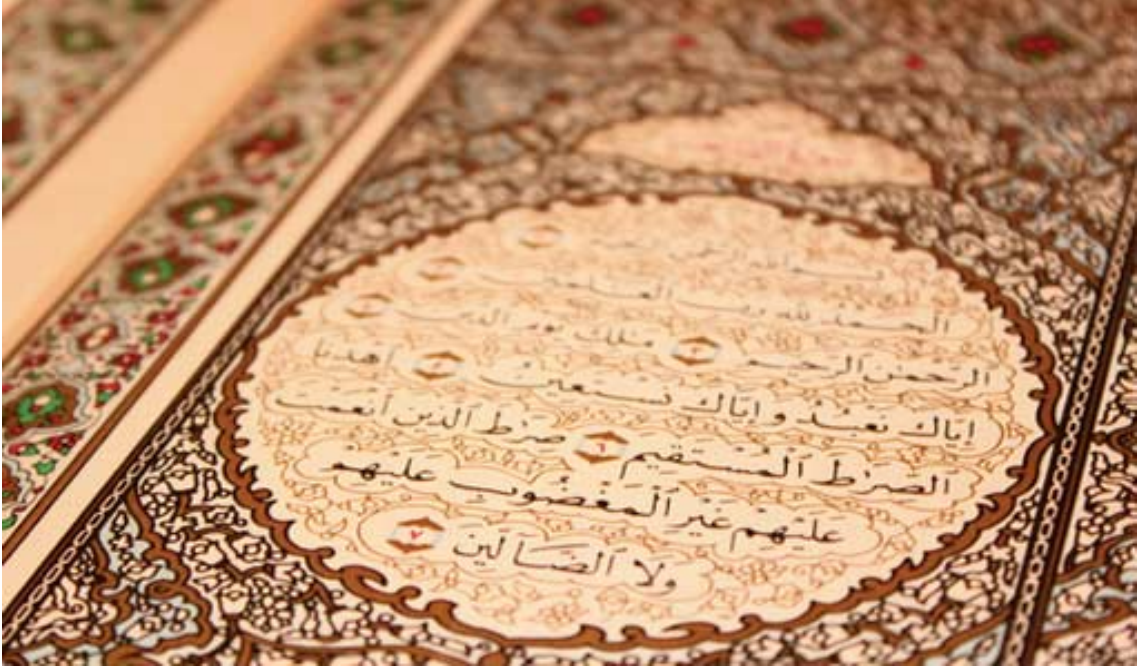 بسم الله الرحمن
الحمد لله رب العلمين
الرحمن الرحيم ملك يوم الدين
إياك نعبد وإياك نستعين اهدنا
الصرط المستقيم ٦ صرط الذين أنعمت
عليهم غير المغضوب عليهم
ولا الضالين ٧